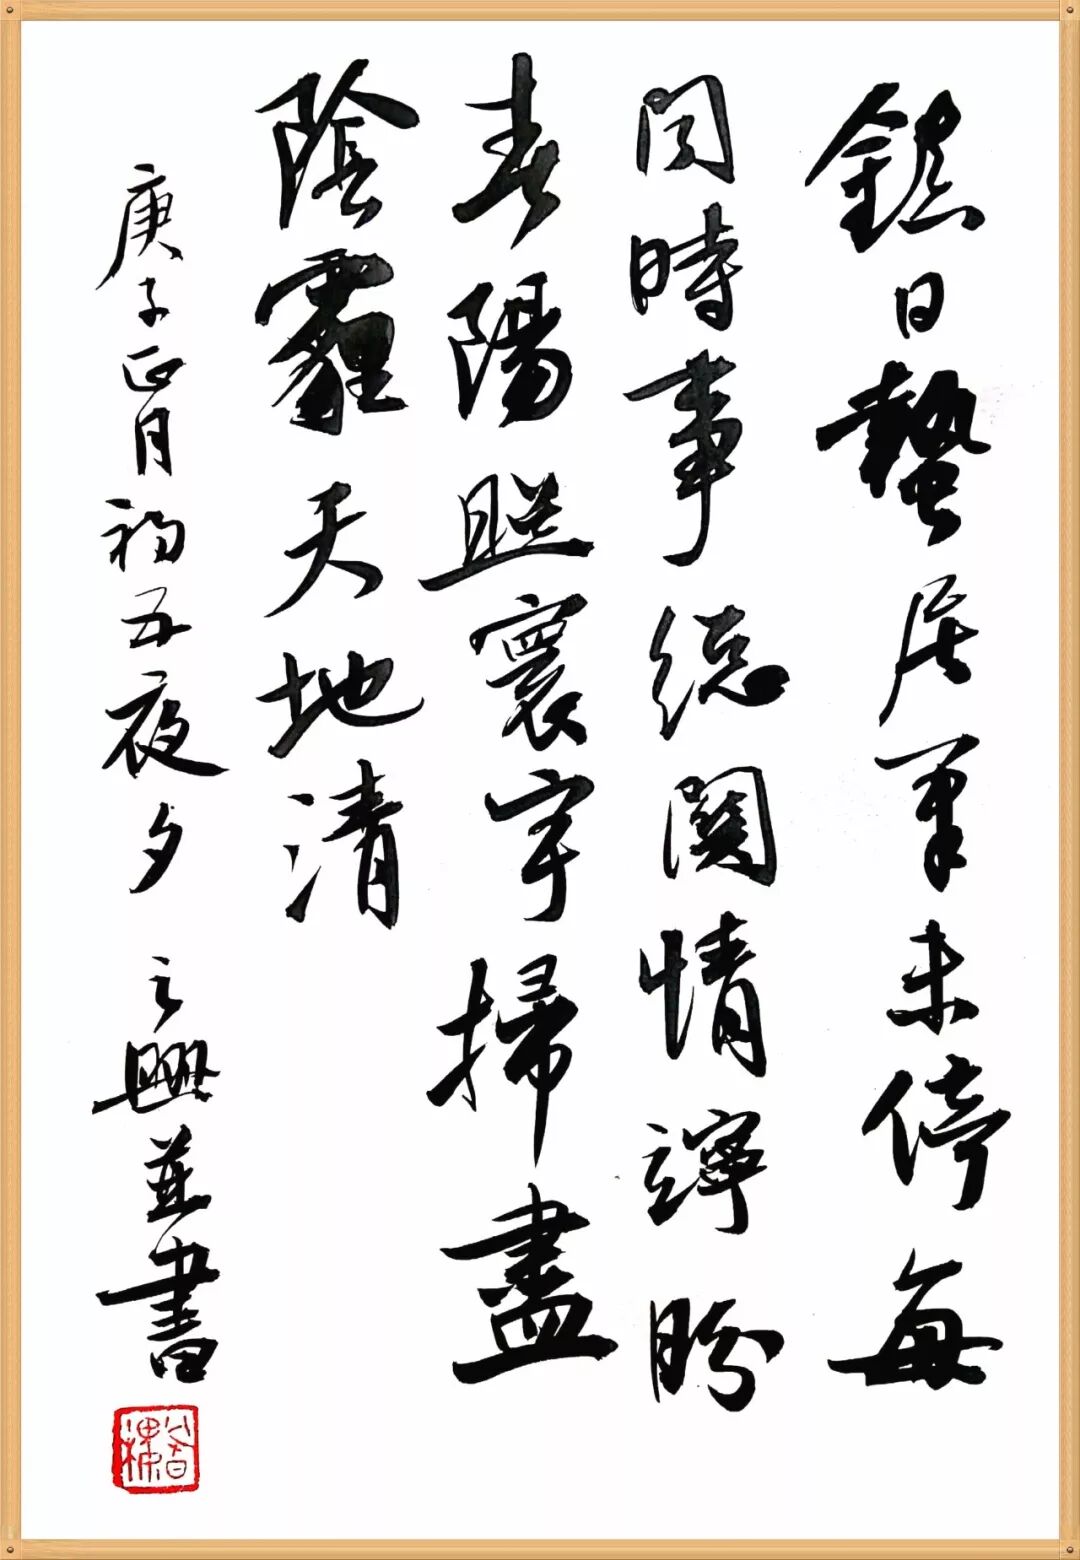 鎮日蟄居筆未停每
聞時事總關情盼
春陽照寰宇掃盡
陰霾天地清
庚子正月初五夜夕 之興並書